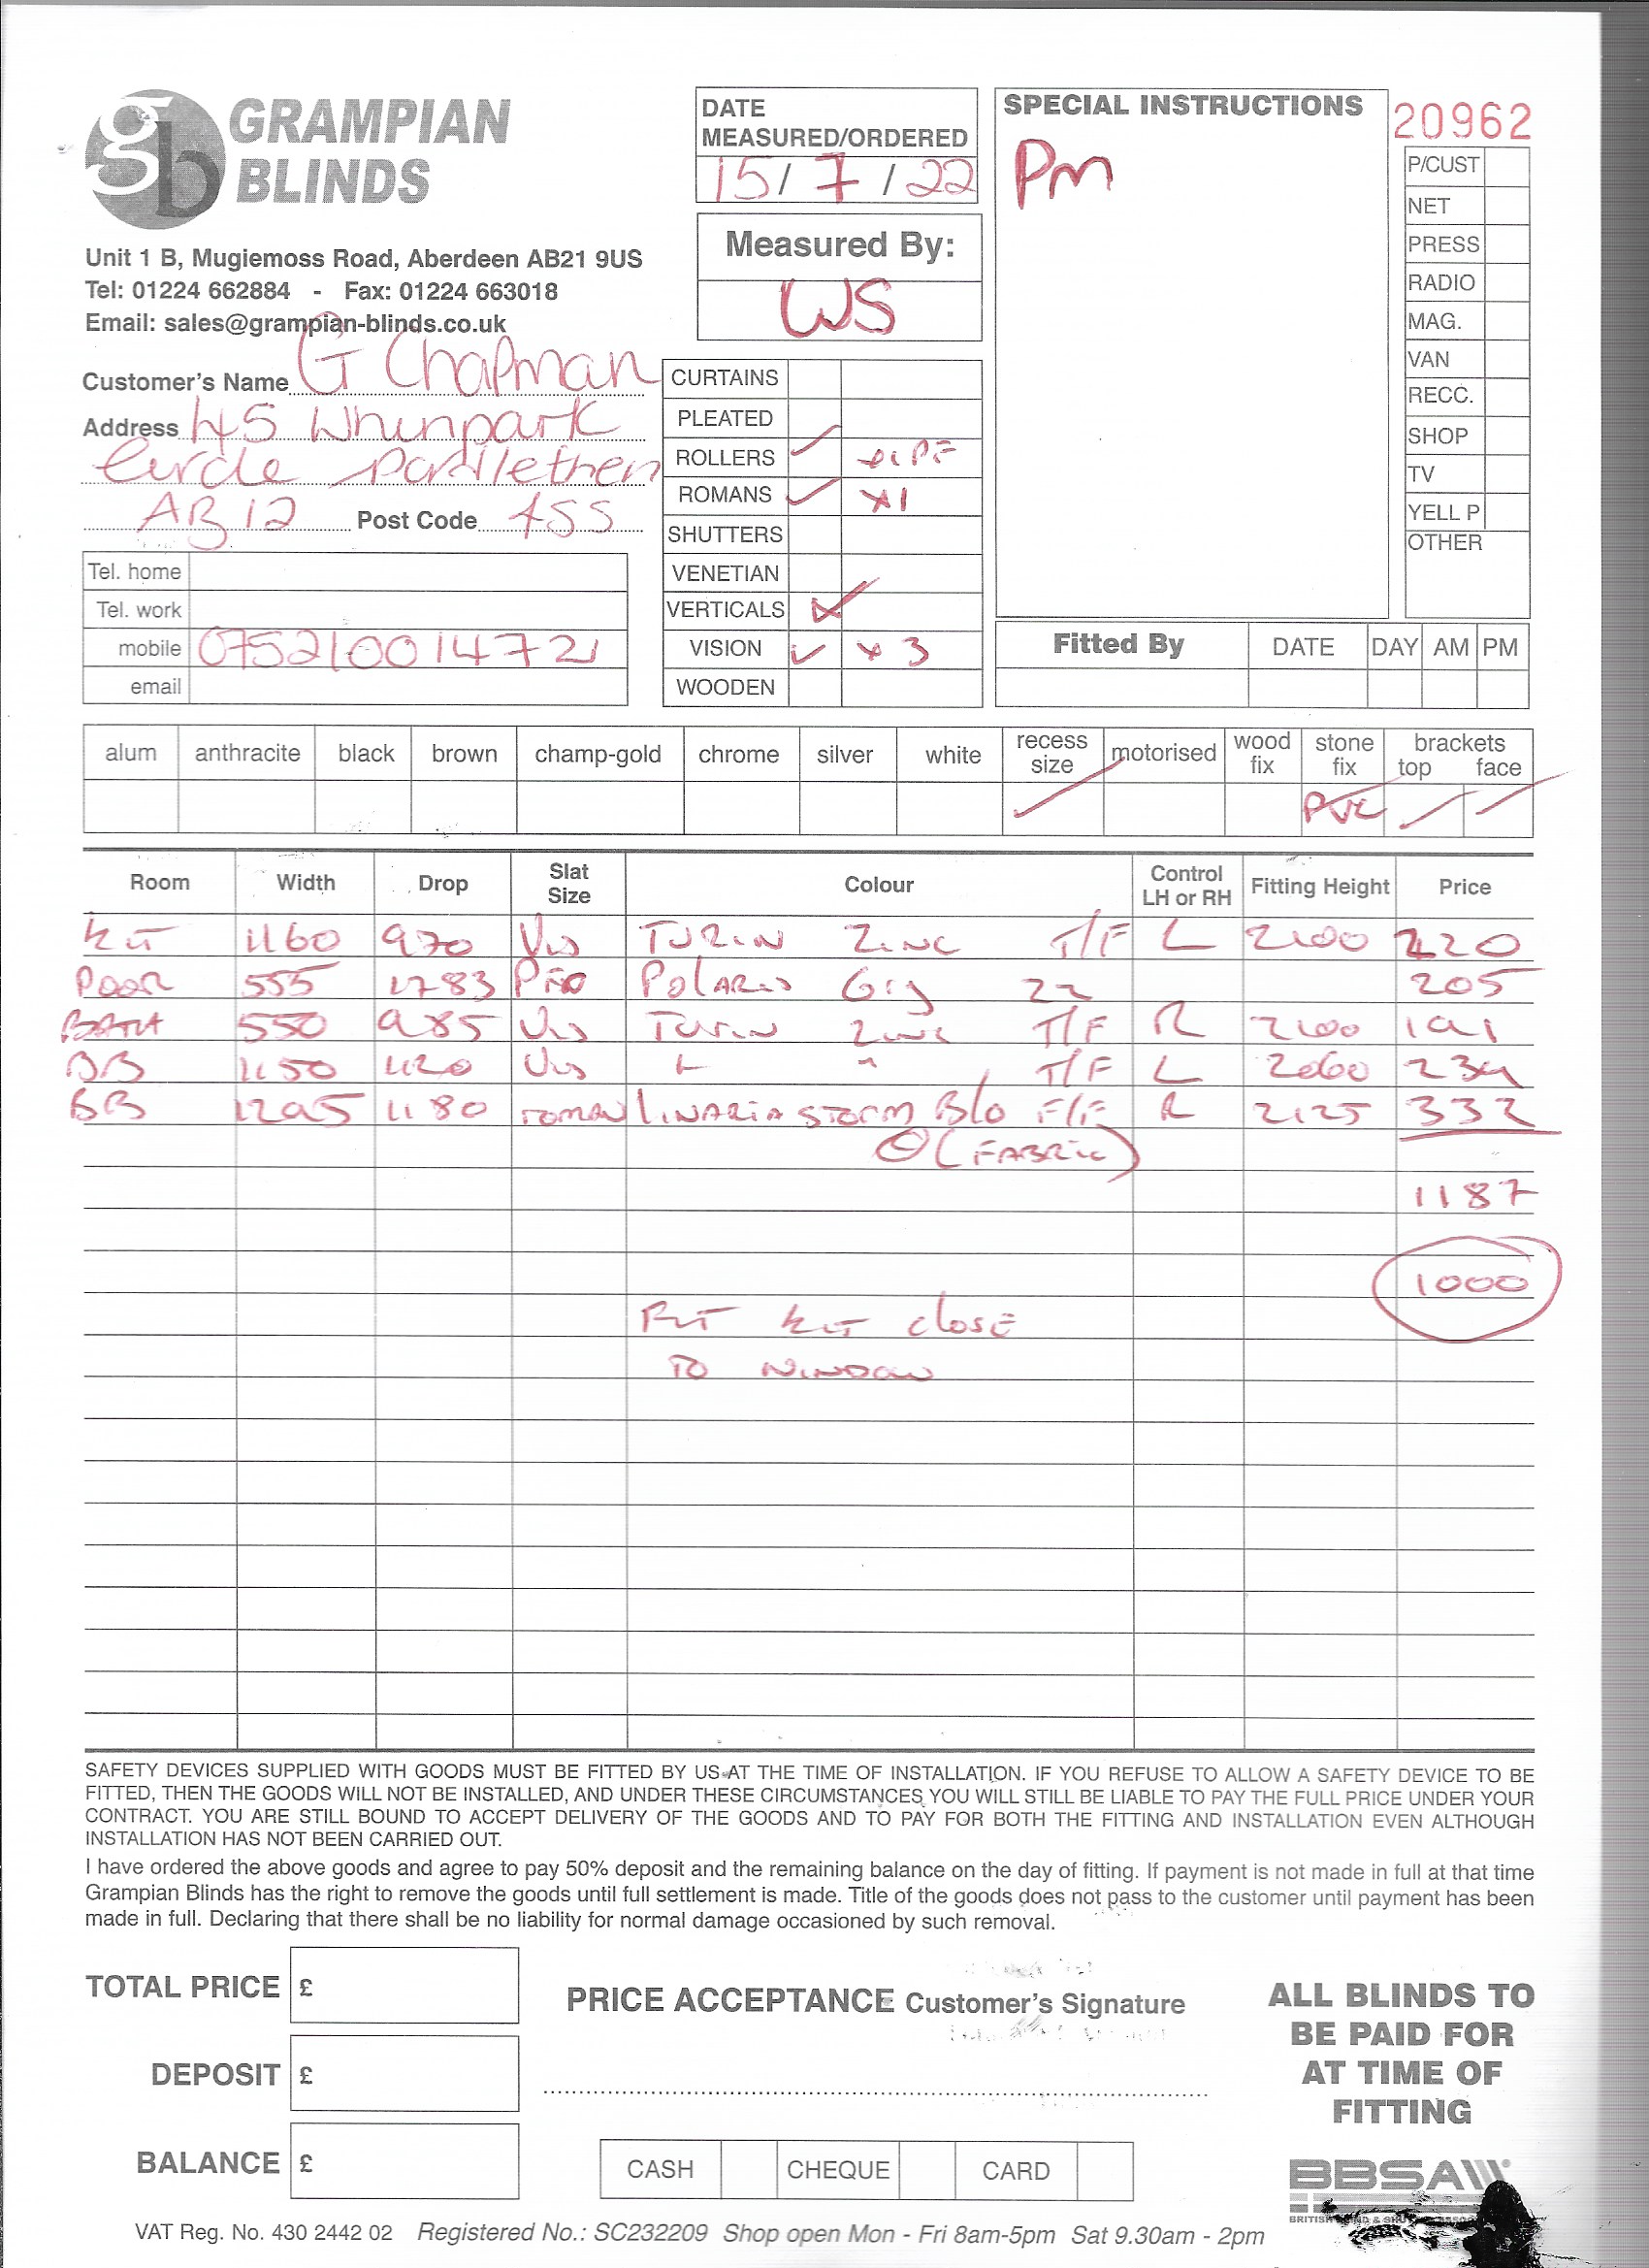 gb GRAMPIAN BLINDS
Unit 1 B, Mugiemoss Road, Aberdeen AB21 9US
Tel: 01224 662884 - Fax: 01224 663018
Email: sales@grampian-blinds.co.uk
DATE MEASURED/ORDERED
15/ 7 / 22
Measured By:
WS
SPECIAL INSTRUCTIONS
Pm
20962
P/CUST
NET
PRESS
RADIO
MAG.
VAN
RECC.
SHOP
TV
YELL P
OTHER
Customer's Name G Chapman
Address 45 Whinpark
Circle Portlethen
AB12 Post Code 4SS
Tel. home
Tel. work
mobile 07521001472
email
CURTAINS
PLEATED
ROLLERS PF
ROMANS x1
SHUTTERS
VENETIAN
VERTICALS
VISION x 3
WOODEN
Fitted By DATE DAY AM PM
alum anthracite black brown champ-gold chrome silver white recess size motorised wood fix stone fix brackets top face
PVC
Room Width Drop Slat Size Colour Control LH or RH Fitting Height Price
Kit 1160 970 Vis TURIN ZINC T/F L 2100 220
DOOR 555 1783 POLARIS 22 205
BATH 550 985 Vis TURIN ZINC T/F R 2100 191
BB 1150 1120 Vis L " T/F L 2060 239
BB 1295 1180 ROMAN LINARIA STORM B/O F/F R 2125 332
(FABRIC)
1187
1000
FIT KIT CLOSE
TO WINDOW
SAFETY DEVICES SUPPLIED WITH GOODS MUST BE FITTED BY US AT THE TIME OF INSTALLATION. IF YOU REFUSE TO ALLOW A SAFETY DEVICE TO BE
FITTED, THEN THE GOODS WILL NOT BE INSTALLED, AND UNDER THESE CIRCUMSTANCES YOU WILL STILL BE LIABLE TO PAY THE FULL PRICE UNDER YOUR
CONTRACT. YOU ARE STILL BOUND TO ACCEPT DELIVERY OF THE GOODS AND TO PAY FOR BOTH THE FITTING AND INSTALLATION EVEN ALTHOUGH
INSTALLATION HAS NOT BEEN CARRIED OUT.
I have ordered the above goods and agree to pay 50% deposit and the remaining balance on the day of fitting. If payment is not made in full at that time
Grampian Blinds has the right to remove the goods until full settlement is made. Title of the goods does not pass to the customer until payment has been
made in full. Declaring that there shall be no liability for normal damage occasioned by such removal.
TOTAL PRICE £
DEPOSIT £
BALANCE £
PRICE ACCEPTANCE Customer's Signature
CASH CHEQUE CARD
ALL BLINDS TO
BE PAID FOR
AT TIME OF
FITTING
BBSA
VAT Reg. No. 430 2442 02 Registered No.: SC232209 Shop open Mon - Fri 8am-5pm Sat 9.30am - 2pm